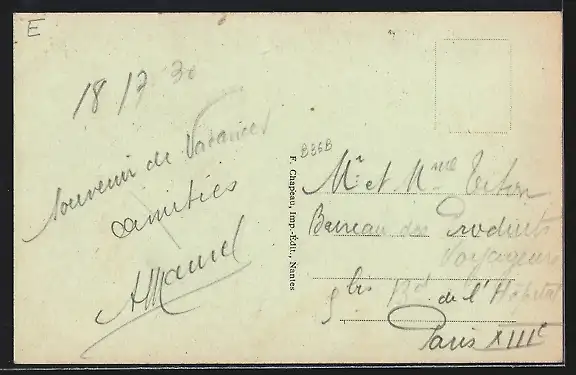 E
18 17 30
Souvenir de Vacances
amitiés
AManuel
B36B
F. Chapeau, Imp.-Édit., Nantes
Mr et Mme Titon
Bureau des Produits
Voyageurs
9 bis Bd de l'Hôpital
Paris XIIIe